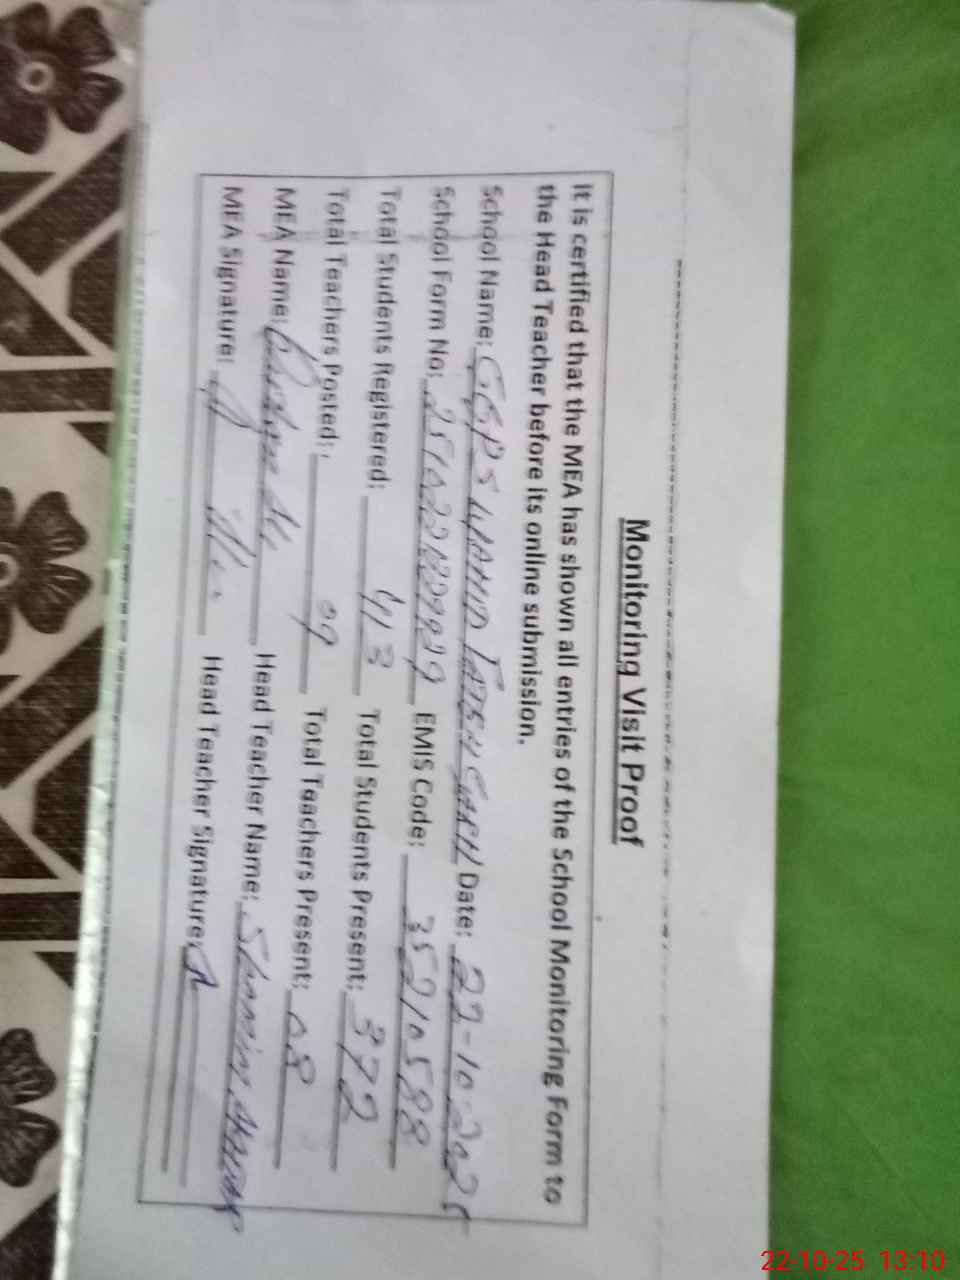 Monitoring Visit Proof
It is certified that the MEA has shown all entries of the School Monitoring Form to
the Head Teacher before its online submission.
School Name: GGPS WAHID FATEH GARH Date: 22-10-2025
School Form No: EMIS Code: 35210588
Total Students Registered: 413 Total Students Present: 372
Total Teachers Posted: 09 Total Teachers Present: 08
MEA Name: Head Teacher Name:
MEA Signature: Head Teacher Signature:
22-10-25 13:10